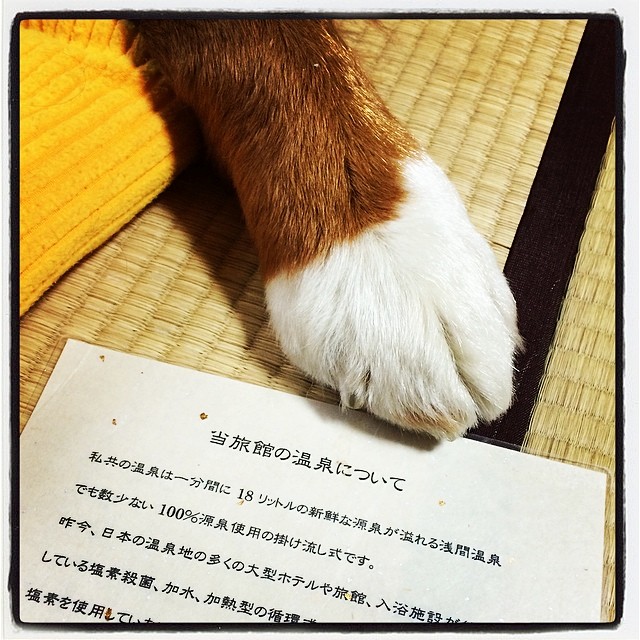 当旅館の温泉について
私共の温泉は一分間に 18 リットルの新鮮な源泉が溢れる浅間温泉
でも数少ない 100%源泉使用の掛け流し式です。
昨今、日本の温泉地の多くの大型ホテルや旅館、入浴施設が
している塩素殺菌、加水、加熱型の循環式
塩素を使用していな